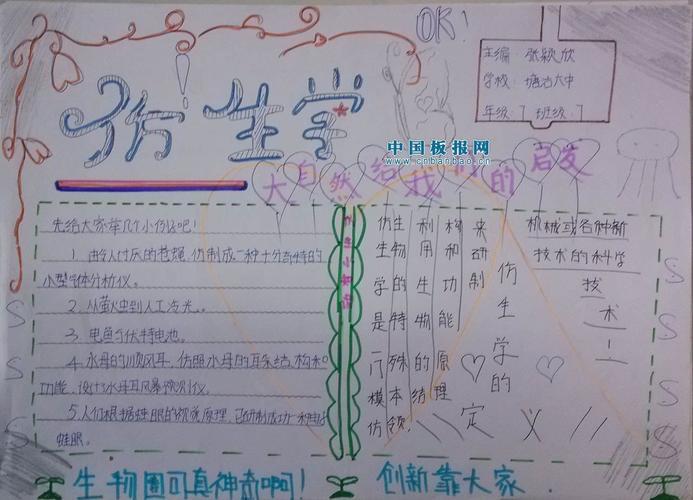 OK!
仿生学
主编 张颖欣
学校: 塘沽六中
年级: 7 班级: 7
中国板报网
www.cnbanbao.cn
大自然给我们的启发
先给大家举几个小例吧!
1. 由令人讨厌的苍蝇, 仿制成一种十分奇特的
小型气体分析仪。
2. 从萤火虫到人工冷光。
3. 电鱼与伏特电池。
4. 水母的顺风耳, 仿照水母的耳朵结构和
功能, 设计水母耳风暴预测仪。
5. 人们根据蛙眼的视觉原理, 已研制成功一种电子
蛙眼。
仿生学是一门模仿
生物的特殊本领,
利用生物的结
构和功能原理
来研制
机械或各种新
技术的科学
技
术
!
仿生学的
定义
生物圈可真神奇啊!
创新靠大家